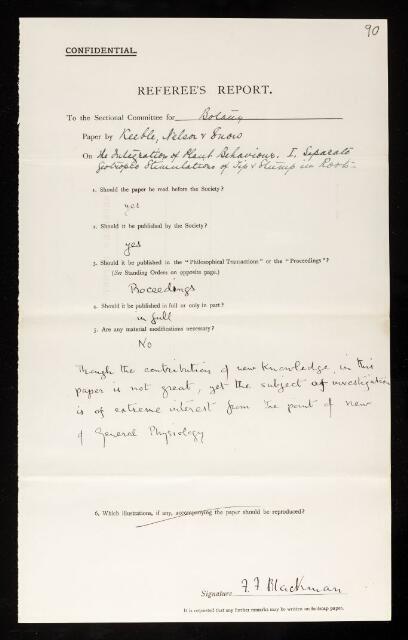 90
CONFIDENTIAL.
REFEREE'S REPORT.
To the Sectional Committee for Botany
Paper by Keeble, Nelson & Snow
On the Integration of Plant Behaviour. I. Separate
Geotropic Stimulations of Tip & Stump in Roots.
1. Should the paper be read before the Society?
yes
2. Should it be published by the Society?
yes
3. Should it be published in the "Philosophical Transactions" or the "Proceedings"?
(See Standing Orders on opposite page.)
Proceedings
4. Should it be published in full or only in part?
in full
5. Are any material modifications necessary?
No
Though the contribution of new knowledge, in this
paper is not great, yet the subject of investigation
is of extreme interest from the point of view
of General Physiology
6. Which illustrations, if any, accompanying the paper should be reproduced?
Signature F. F. Blackman
It is requested that any further remarks may be written on foolscap paper.